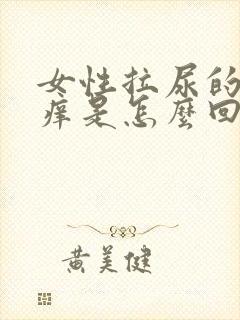 女性拉尿的
痒是怎麼回
黄美健